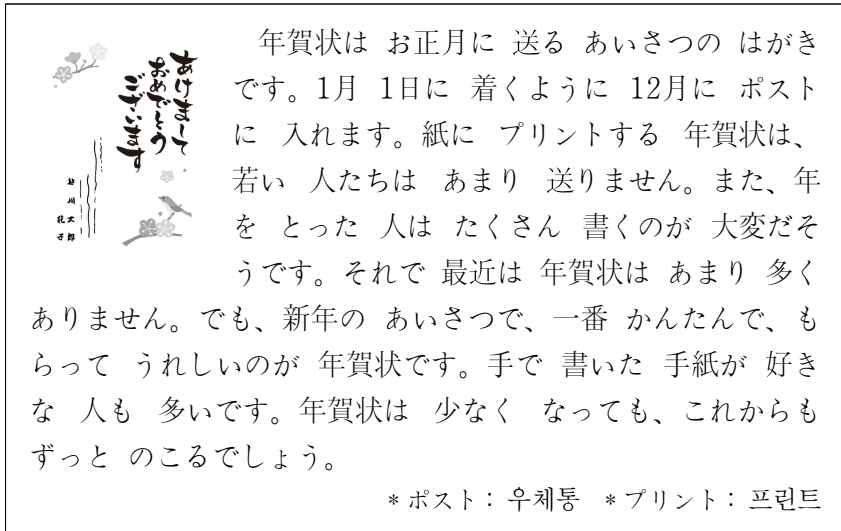 あけまして
おめでとう
ございます
太郎
花子
年賀状は お正月に 送る あいさつの はがき
です。1月 1日に 着くように 12月に ポスト
に 入れます。紙に プリントする 年賀状は、
若い 人たちは あまり 送りません。また、年
を とった 人は たくさん 書くのが 大変だそ
うです。それで 最近は 年賀状は あまり 多く
ありません。でも、新年の あいさつで、一番 かんたんで、も
らって うれしいのが 年賀状です。手で 書いた 手紙が 好き
な 人も 多いです。年賀状は 少なく なっても、これからも
ずっと のこるでしょう。
* ポスト : 우체통 * プリント : 프린트